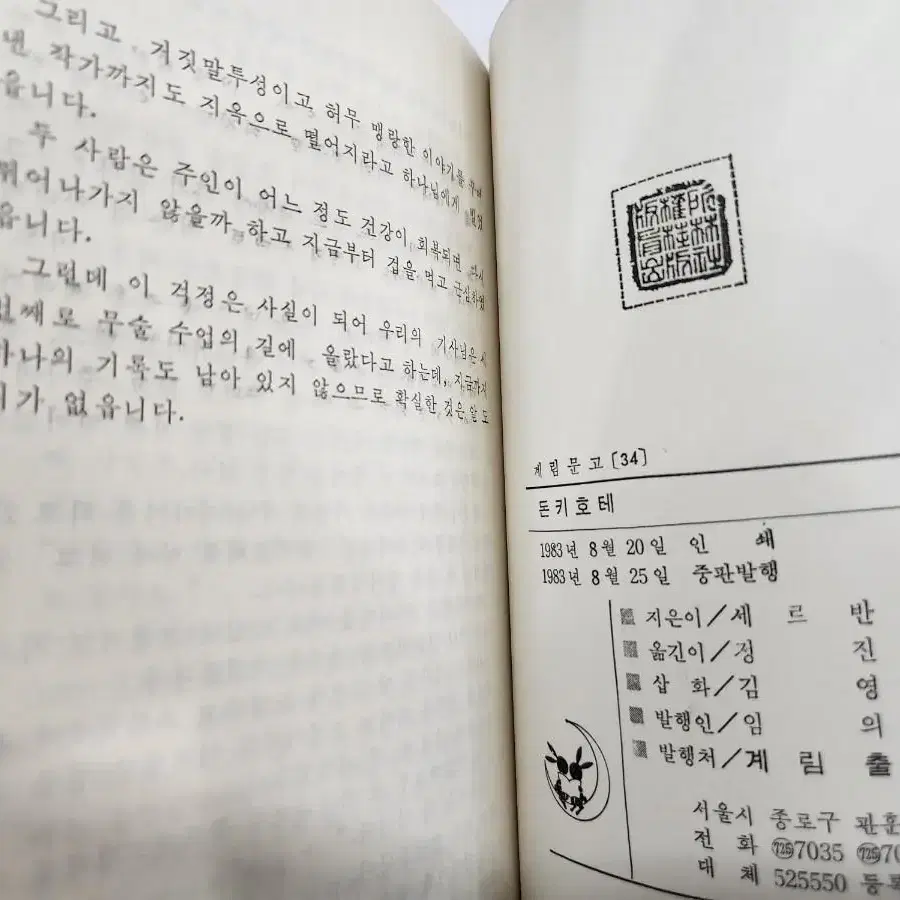 그리고 거짓말투성이고 허무 맹랑한 이야기를 꾸며
낸 작가까지도 지옥으로 떨어지라고 하나님에게 빌었
읍니다.
두 사람은 주인이 어느 정도 건강이 회복되면 다시
뛰어나가지 않을까 하고 지금부터 겁을 먹고 근심하였
읍니다.
그런데 이 걱정은 사실이 되어 우리의 기사님은 세
번째로 무술 수업의 길에 올랐다고 하는데, 지금까지
하나의 기록도 남아 있지 않으므로 확실한 것은 알 도
리가 없읍니다.
계림문고〔34〕
돈키호테
1983년 8월 20일 인 쇄
1983년 8월 25일 중판발행
지은이/세 르 반
옮긴이/정 진
삽 화/김 영
발행인/임 의
발행처/계 림 출
서울시 종로구 관훈
전 화 725 7035 725 70
대 체 525550 등록